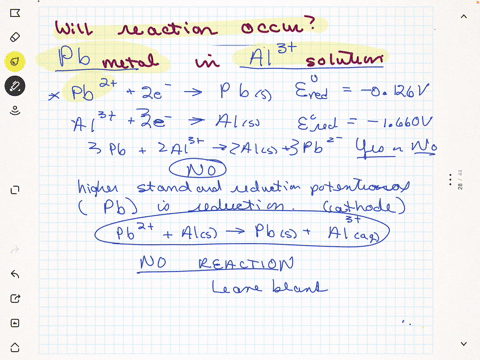 Will reaction occur?
Pb metal in Al³⁺ solution
* Pb²⁺ + 2e⁻ → Pb(s) E⁰red = -0.126V
Al³⁺ + 3e⁻ → Al(s) E⁰red = -1.660V
3Pb + 2Al³⁺ → 2Al(s) + 3Pb²⁻ Yes or No
NO
higher standard reduction
(Pb) is reduction. (cathode)
Pb²⁺ + Al(s) → Pb(s) + Al³⁺(aq)
NO REACTION
Leave blank